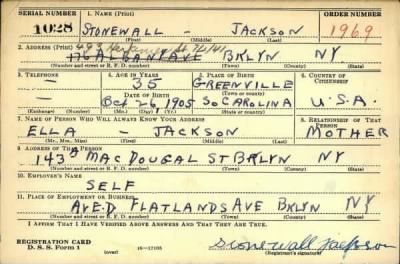 SERIAL NUMBER 1. NAME (Print) ORDER NUMBER
1028 STONEWALL - JACKSON 1969
(First) (Middle) (Last)
2. ADDRESS (Print) 493 St 7/1/41
176 ALBANY AVE BKLYN NY
(Number and street or R. F. D. number) (Town) (County) (State)
3. TELEPHONE 4. AGE IN YEARS 5. PLACE OF BIRTH 6. COUNTRY OF CITIZENSHIP
- 35 GREENVILLE
DATE OF BIRTH (Town or county)
- Oct 26, 1905 SO CAROLINA U.S.A.
(Exchange) (Number) (Mo.) (Day) (Yr.) (State or country)
7. NAME OF PERSON WHO WILL ALWAYS KNOW YOUR ADDRESS 8. RELATIONSHIP OF THAT PERSON
ELLA - JACKSON MOTHER
(Mr., Mrs., Miss) (First) (Middle) (Last)
9. ADDRESS OF THAT PERSON
143 MACDOUGAL ST BRLYN NY
(Number and street or R. F. D. number) (Town) (County) (State)
10. EMPLOYER'S NAME
SELF
11. PLACE OF EMPLOYMENT OR BUSINESS
AVE. D FLATLANDS AVE BKLYN NY
(Number and street or R. F. D. number) (Town) (County) (State)
I AFFIRM THAT I HAVE VERIFIED ABOVE ANSWERS AND THAT THEY ARE TRUE.
REGISTRATION CARD
D. S. S. Form 1 (over) 16-17105 Stonewall Jackson
(Registrant's signature)